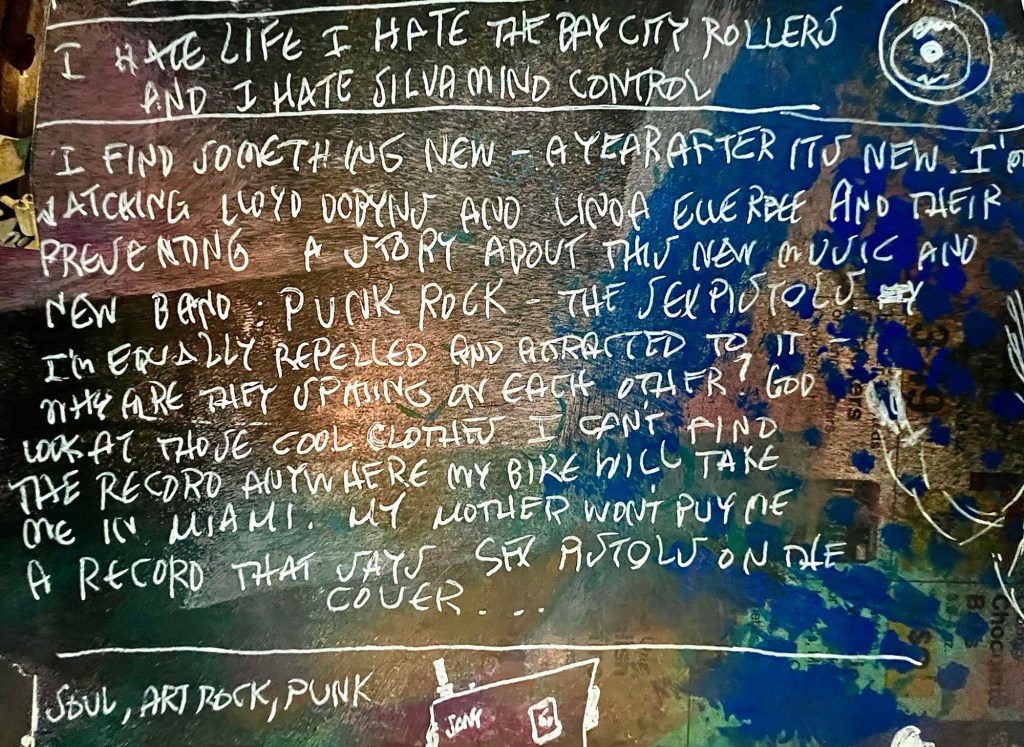 I HATE LIFE I HATE THE BAY CITY ROLLERS
AND I HATE SILVA MIND CONTROL
I FIND SOMETHING NEW - A YEAR AFTER ITS NEW. I'M
WATCKING LLOYD DOBYNS AND LINDA ELLERBEE AND THEIR
PRESENTING A STORY ABOUT THIS NEW MUSIC AND
NEW BAND: PUNK ROCK - THE SEX PISTOLS
I'M EQUALLY REPELLED AND ATTRACTED TO IT -
WHY ARE THEY SPITTING ON EACH OTHER? GOD
LOOK AT THOSE COOL CLOTHES I CAN'T FIND
THE RECORD ANYWHERE MY BIKE WILL TAKE
ME IN MIAMI. MY MOTHER WON'T BUY ME
A RECORD THAT SAYS SEX PISTOLS ON THE
COVER...
SOUL, ART ROCK, PUNK
SONY